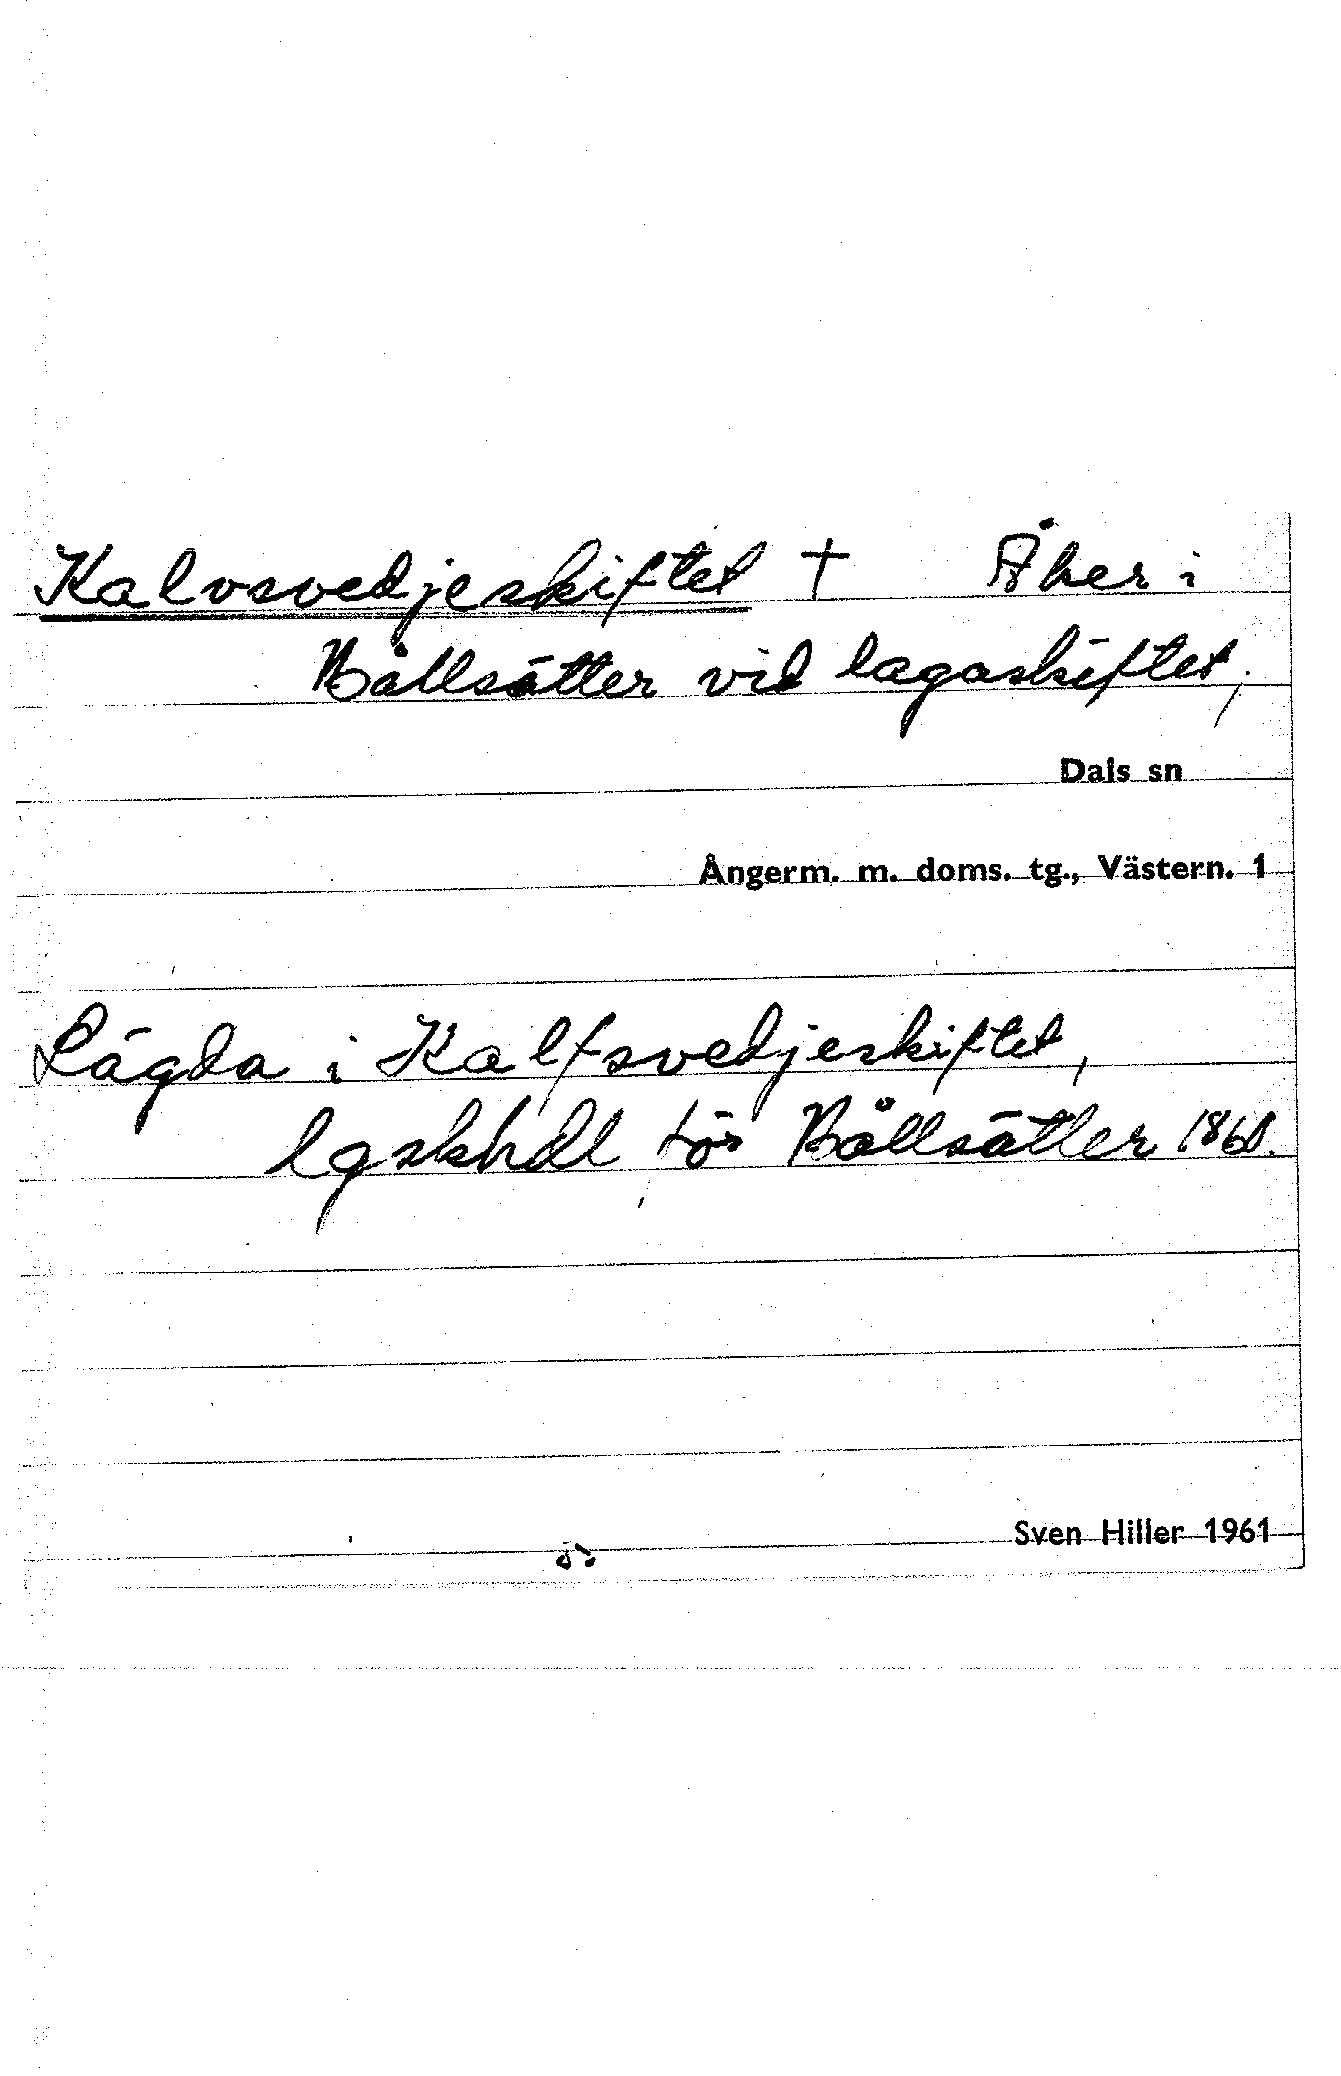 Kalvsvedjeskiftet † Åker i
Bållsätter vid lagaskiftet,
Dals sn
Ångerm. m. doms. tg., Västern. 1
Lägda i Kalfsvedjeskiftet,
lgskhdl för Bållsätter
Sven Hiller 1961